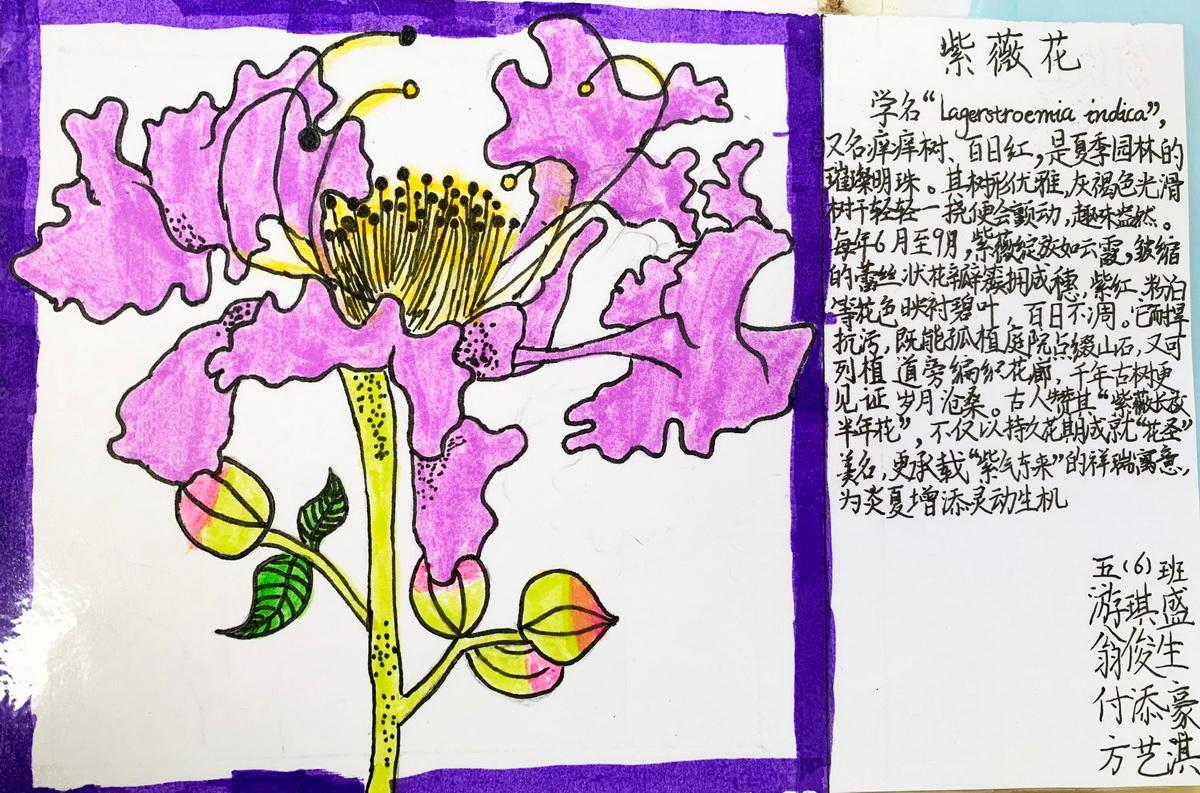 紫薇花
学名“Lagerstroemia indica”,
又名痒痒树、百日红,是夏季园林的
璀璨明珠。其树形优雅,灰褐色光滑
树干轻轻一挠便会颤动,趣味盎然。
每年6月至9月,紫薇绽放如云霞,皱缩
的蕾丝状花瓣簇拥成穗,紫红、粉白
等花色映衬碧叶,百日不凋。它耐旱
抗污,既能孤植庭院点缀山石,又可
列植道旁编织花廊,千年古树更
见证岁月沧桑。古人赞其“紫薇长放
半年花”,不仅以持久花期成就“花圣”
美名,更承载“紫气东来”的祥瑞寓意,
为炎夏增添灵动生机
五(6)班
游琪盛
翁俊生
付添豪
方艺淇